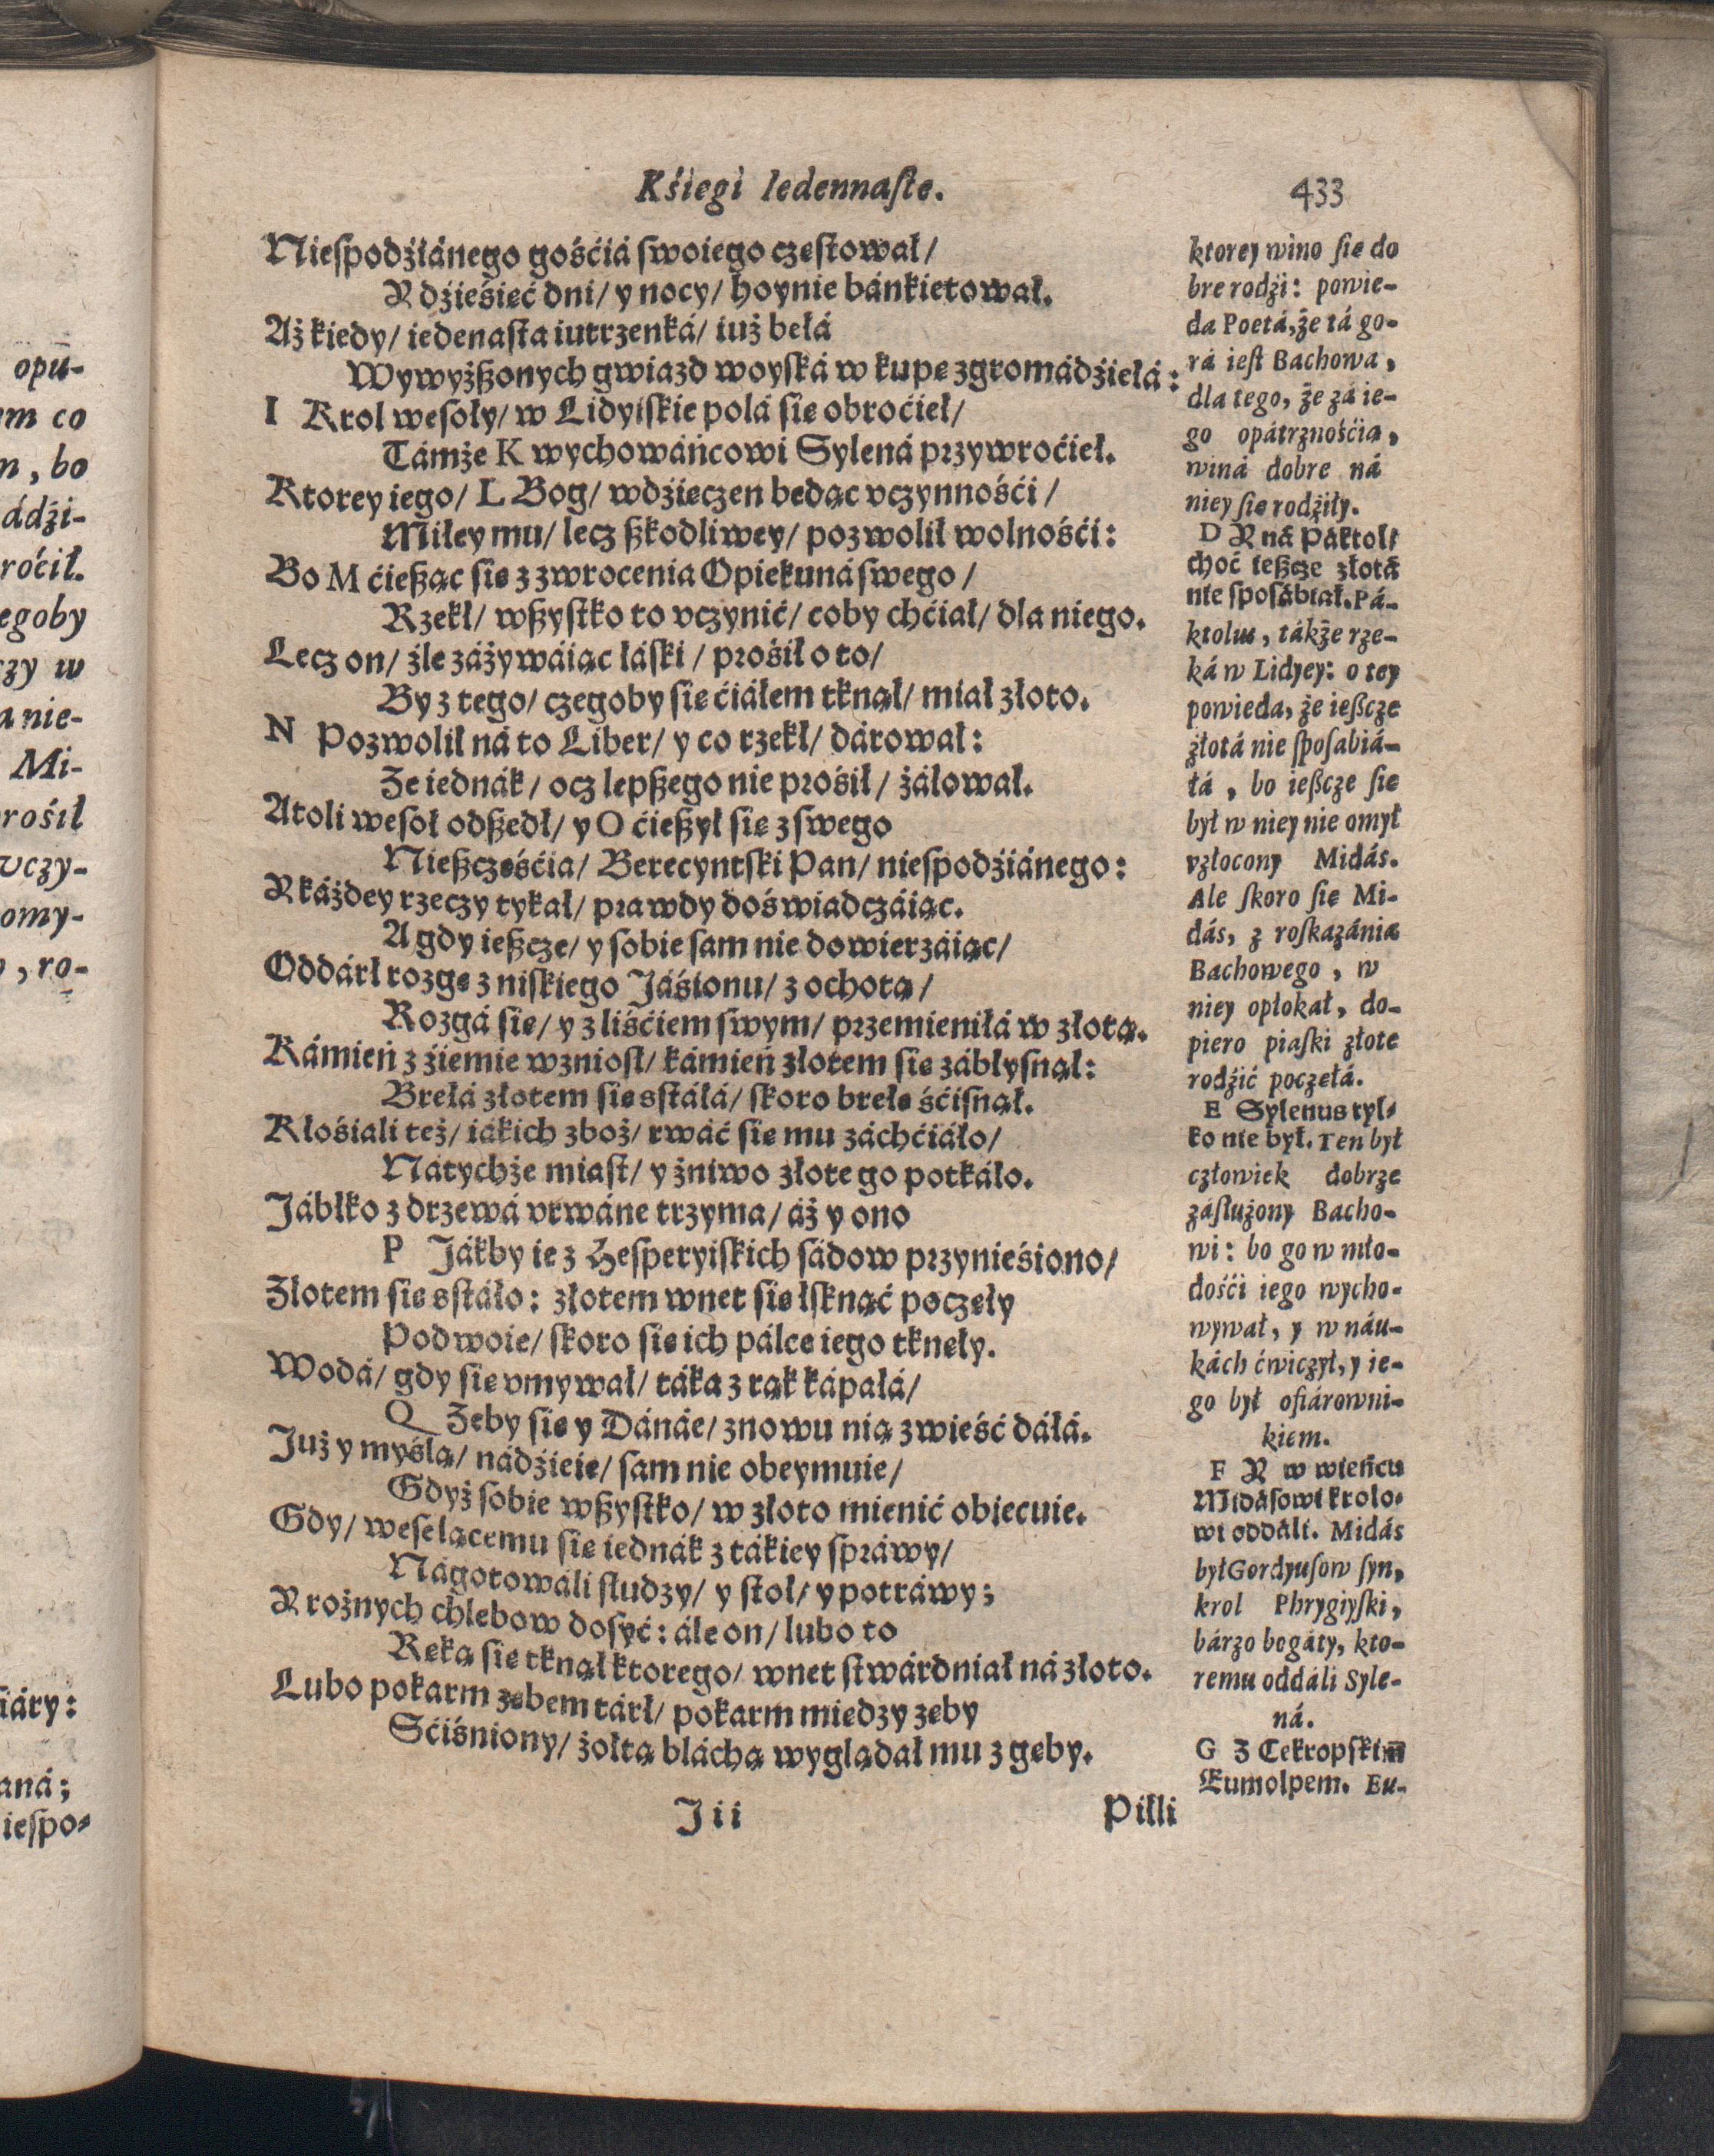 Kśięgi Iedennaste. 433
Niespodźiánego gośćiá swoiego częstował/
Y dźieśięć dni/ y nocy/ hoynie bánkietował.
Aż kiedy/ iedenasta iutrzenká/ iuż belá
Wywyższonych gwiazd woyská w kupę zgromádźiełá:
I Krol wesoły/ w Lidyiskie polá się obroćieł/
Támże K wychowáńcowi Sylená przywroćieł.
Ktorey iego/ L Bog/ wdźięczen będąc vczynnośći/
Miłey mu/ lecz szkodliwey/ pozwolił wolnośći:
Bo M ćiesząc się z zwrocenia Opiekuná swego/
Rzekł/ wszystko to vczynić/ coby chćiał/ dla niego.
Lecz on/ źle záżywáiąc łáski/ prośił o to/
By z tego/ czegoby się ćiáłem tknął/ miał złoto.
N Pozwolił ná to Liber/ y co rzekł/ dárował:
Że iednák/ ocz lepszego nie prośił/ żáłował.
Atoli wesoł odszedł/ y O ćieszył się z swego
Nieszczęśćia/ Berecyntski Pan/ niespodźiánego:
Y káżdey rzeczy tykał/ prawdy doświadczáiąc.
A gdy ieszcze/ y sobie sam nie dowierzáiąc/
Oddárł rozgę z niskiego Jáśionu/ z ochotą/
Rozgá się/ y z liśćiem swym/ przemieniłá w złotą.
Kámień z źiemie wzniosł/ kámień złotem się zábłysnął:
Bryłá złotem się sstáłá/ skoro bryłę śćisnął.
Kłośiali też/ iákich zboż/ rwáć się mu záchćiáło/
Nátychże miast/ y żniwo złote go potkáło.
Jábłko z drzewá vrwáne trzyma/ áż y ono
P Jákby ie z Hesperyiskich sádow przynieśiono/
Złotem się sstáło: złotem wnet się łsknąć poczęły
Podwoie/ skoro się ich pálce iego tknęły.
Wodá/ gdy się vmywał/ táka z rąk kápáłá/
Q Żeby się y Dánáe/ znowu nią zwieść dáłá.
Już y myślą/ nádźieię/ sam nie obeymuie/
Gdyż sobie wszystko/ w złoto mienić obiecuie.
Gdy/ weselącemu się iednák z tákiey spráwy/
Nágotowáli słudzy/ y stoł/ y potráwy;
Y rożnych chlebow dosyć: ále on/ lubo to
Ręką się tknął ktorego/ wnet stwárdniał ná złoto.
Lubo pokarm zębem tárł/ pokarm miedzy zęby
Śćiśniony/ żołtą bláchą wyglądał mu z gęby.
Jii Pilli
ktorey wino się do
bre rodźi: powie-
da Poetá, że tá go-
rá iest Bachowa,
dla tego, że zá ie-
go opátrznośćia,
winá dobre ná
niey się rodźiły.
D Y ná Páktol/
choć ieszcze złotá
nie sposábiał. Pá-
ktolus, tákże rze-
ká w Lidyey: o tey
powieda, że ieszcze
złotá nie sposabiá-
łá, bo ieszcze się
był w niey nie omył
vzłocony Midás.
Ale skoro się Mi-
dás, z roskazánia
Bachowego, w
niey opłokał, do-
piero piaski złote
rodźić poczęłá.
E Sylenus tyl-
ko nie był. Ten był
człowiek dobrze
zásłużony Bacho-
wi: bo go w mło-
dośći iego wycho-
wywał, y w náu-
kách ćwiczył, y ie-
go był ofiárowni-
kiem.
F Y w wieńcu
Midásowi krolo-
wi oddáli. Midás
był Gordyusow syn,
krol Phrygiyski,
bárzo bogáty, kto-
remu oddáli Syle-
ná.
G Z Cekropskim
Eumolpem. Eu-
opu-
m co
n, bo
ádźi-
roćił.
egoby
rzy w
a nie-
Mi-
rośił
vczy-
omy-
, ro-
iáry:
aná;
iespo-